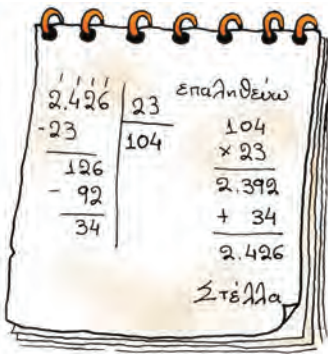 2.426 | 23
-23
104
126
- 92
34
επαληθεύω
104
× 23
2.392
+ 34
2.426
Στέλλα